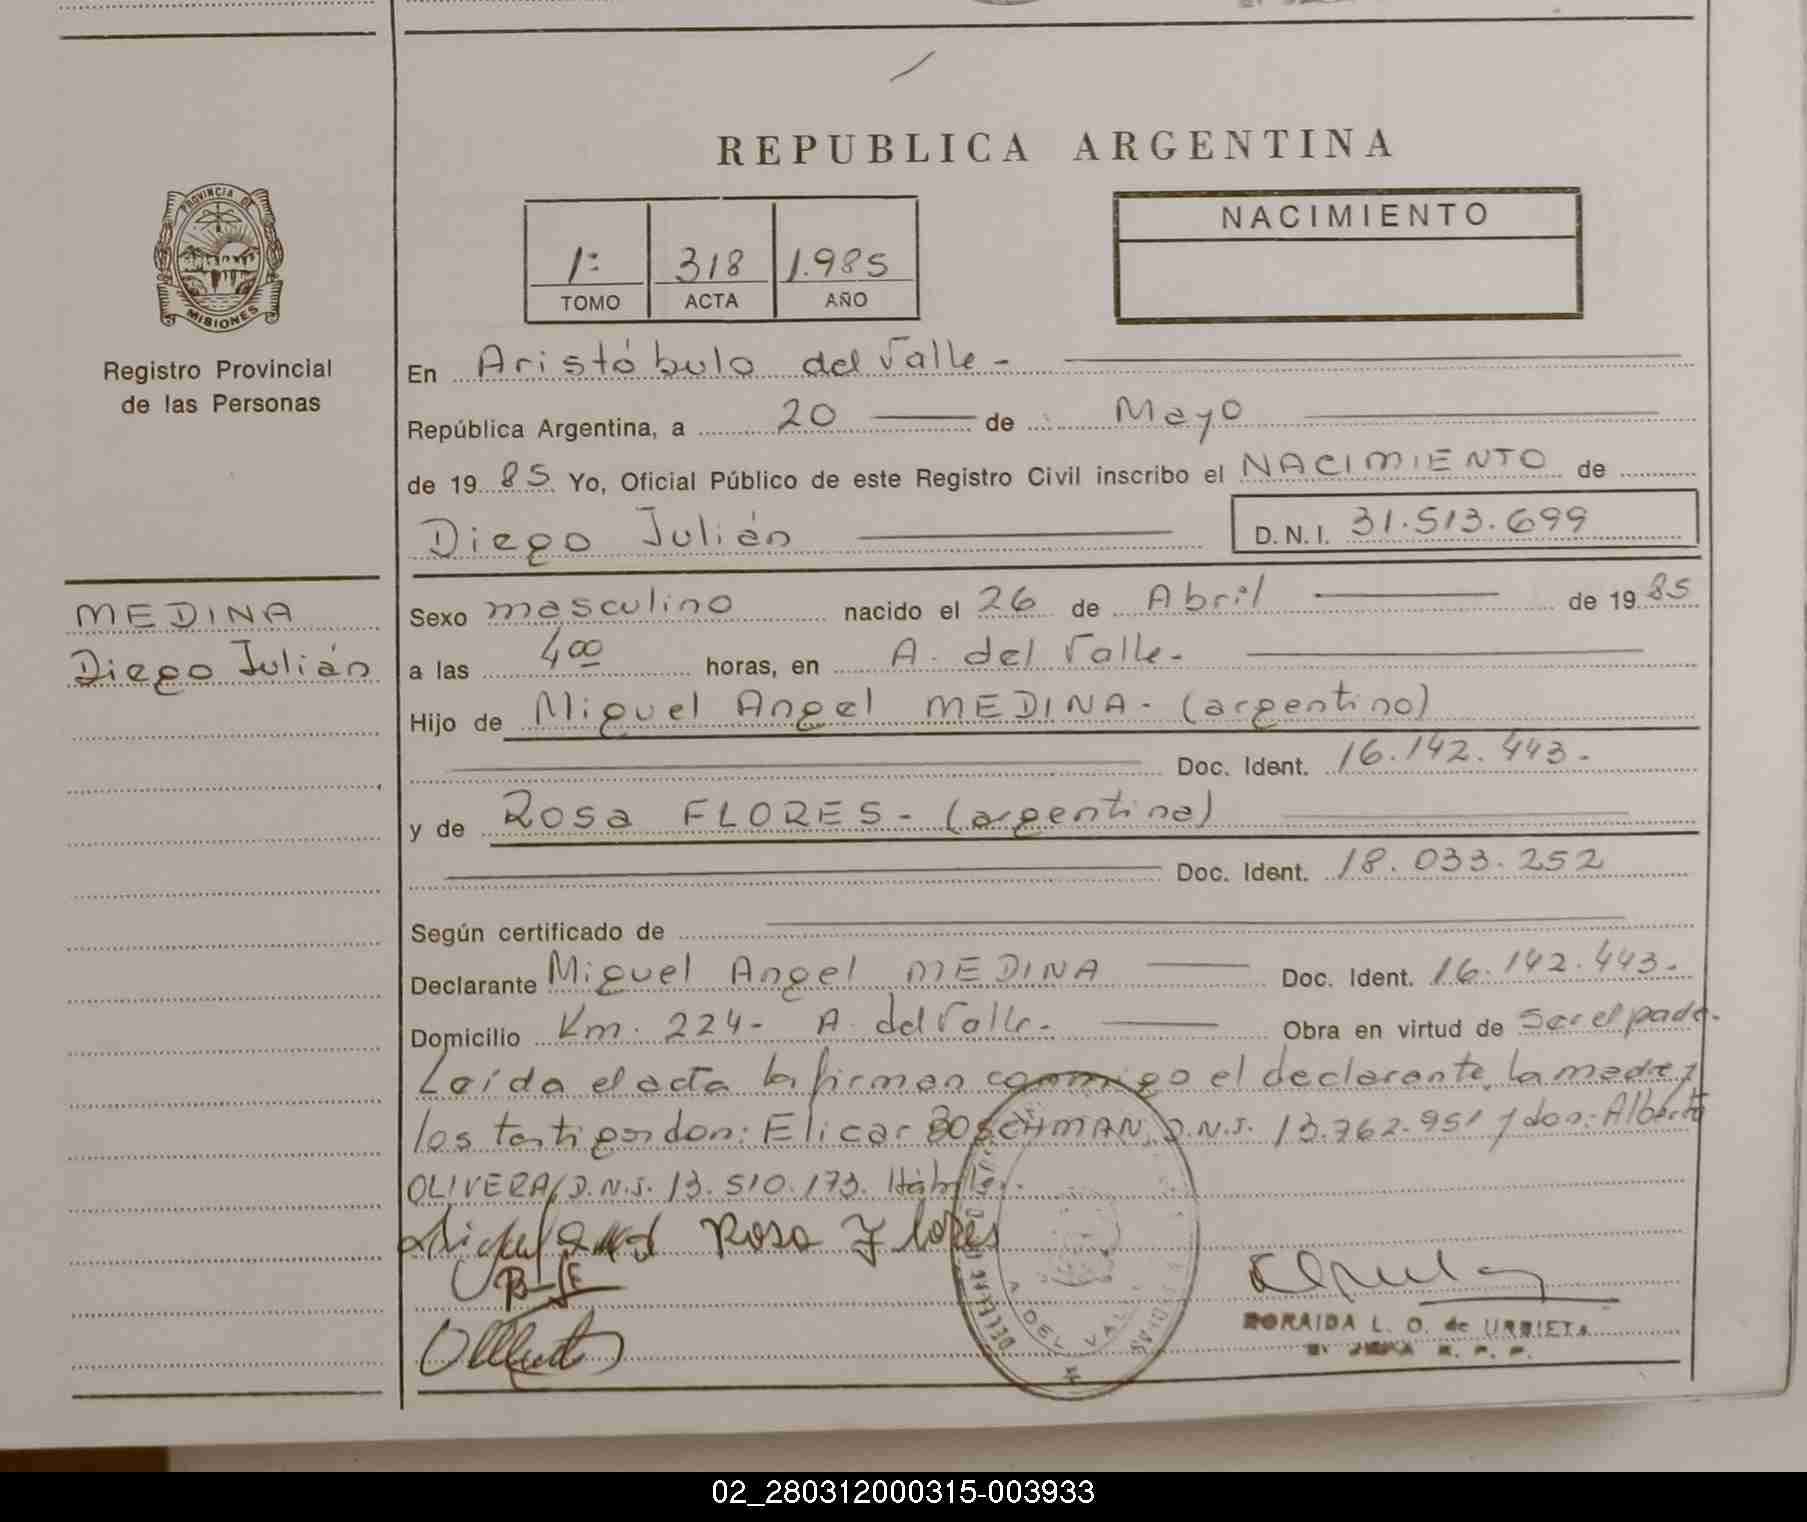 REPUBLICA ARGENTINA
PROVINCIA DE
MISIONES
Registro Provincial
de las Personas
1º 318 1.985
TOMO ACTA AÑO
NACIMIENTO
En Aristóbulo del Valle -
República Argentina, a 20 de Mayo
de 1985 Yo, Oficial Público de este Registro Civil inscribo el NACIMIENTO de
Diego Julián D.N.I. 31.513.699
MEDINA
Diego Julián
Sexo masculino nacido el 26 de Abril de 1985
a las 4 00 horas, en A. del Valle -
Hijo de Miguel Angel MEDINA - (argentino)
Doc. Ident. 16.142.443.-
y de Rosa FLORES - (argentina)
Doc. Ident. 18.033.252
Según certificado de
Declarante Miguel Angel MEDINA Doc. Ident. 16.142.443.-
Domicilio Km. 224 - A. del Valle - Obra en virtud de ser el padre.
Leída el acta la firman conmigo el declarante, la madre y
los testigos don: Elicar BOSCHMAN, D.N.I. 13.762.951 y don: Alberto
OLIVERA, D.N.I. 13.510.173. Hábiles.
Rosa Flores
A. DEL VALLE
L. O. de URBIETA
02_280312000315-003933